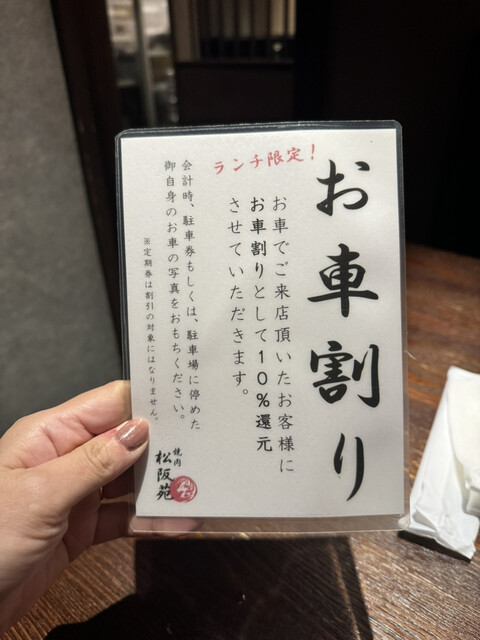 お車割り
ランチ限定!
お車でご来店頂いたお客様に
お車割りとして10%還元
させていただきます。
会計時、駐車券もしくは、駐車場に停めた
御自身のお車の写真をおもちください。
※定期券は割引の対象にはなりません。
焼肉
松阪苑